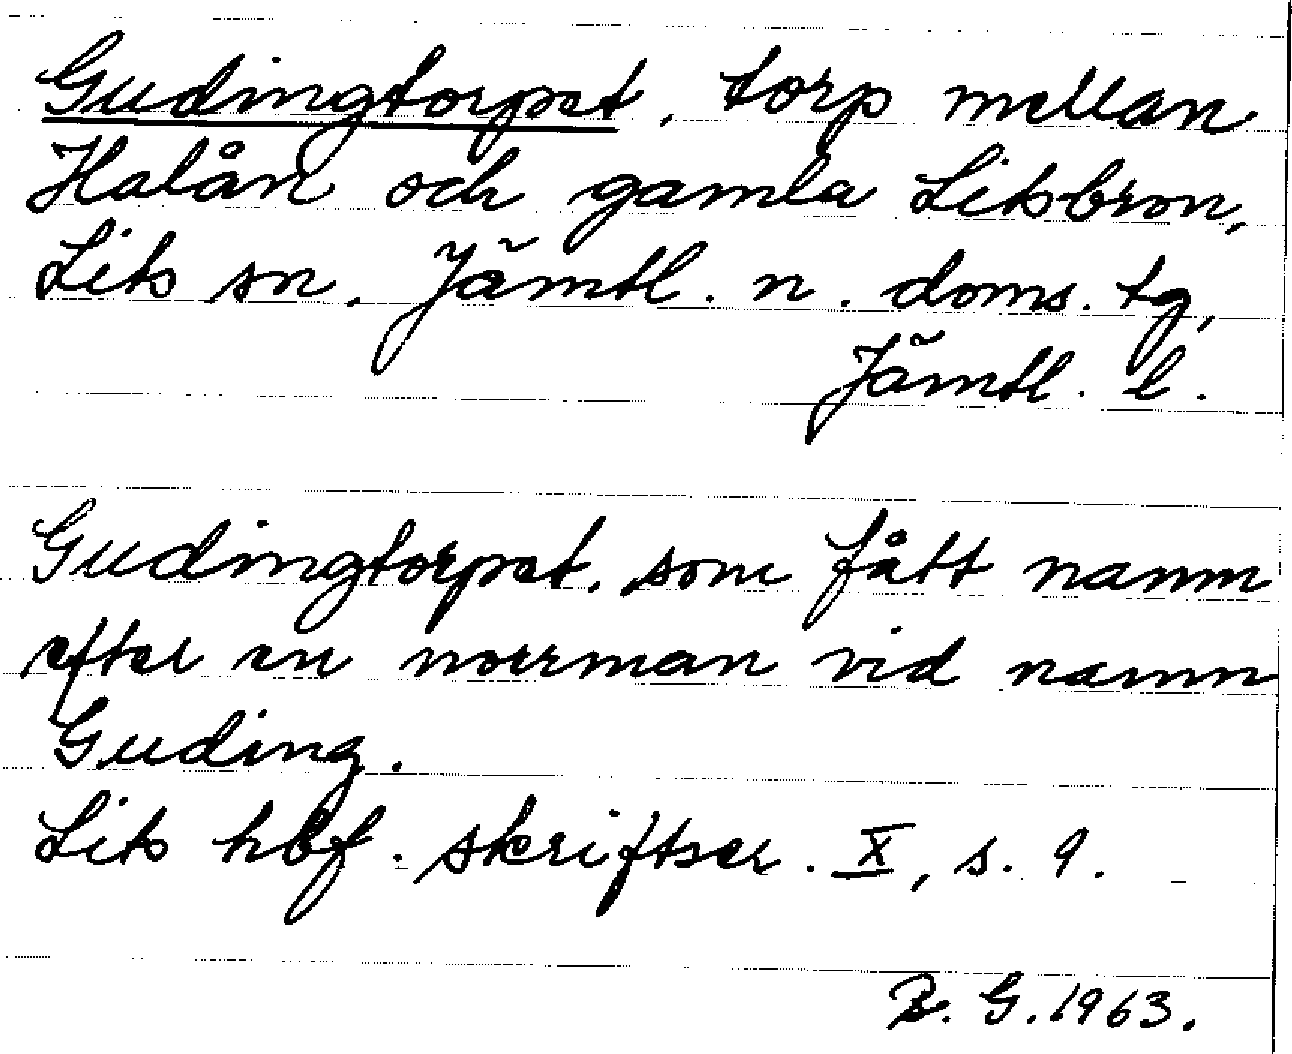 Gudingtorpet, torp mellan
Halån och gamla Litsbron,
Lits sn. Jämtl. n. doms. tg,
Jämtl. l.
Gudingtorpet, som fått namn
efter en norrman vid namn
Guding.
Lits hbf. skriftser. X, s. 9.
B. G. 1963.